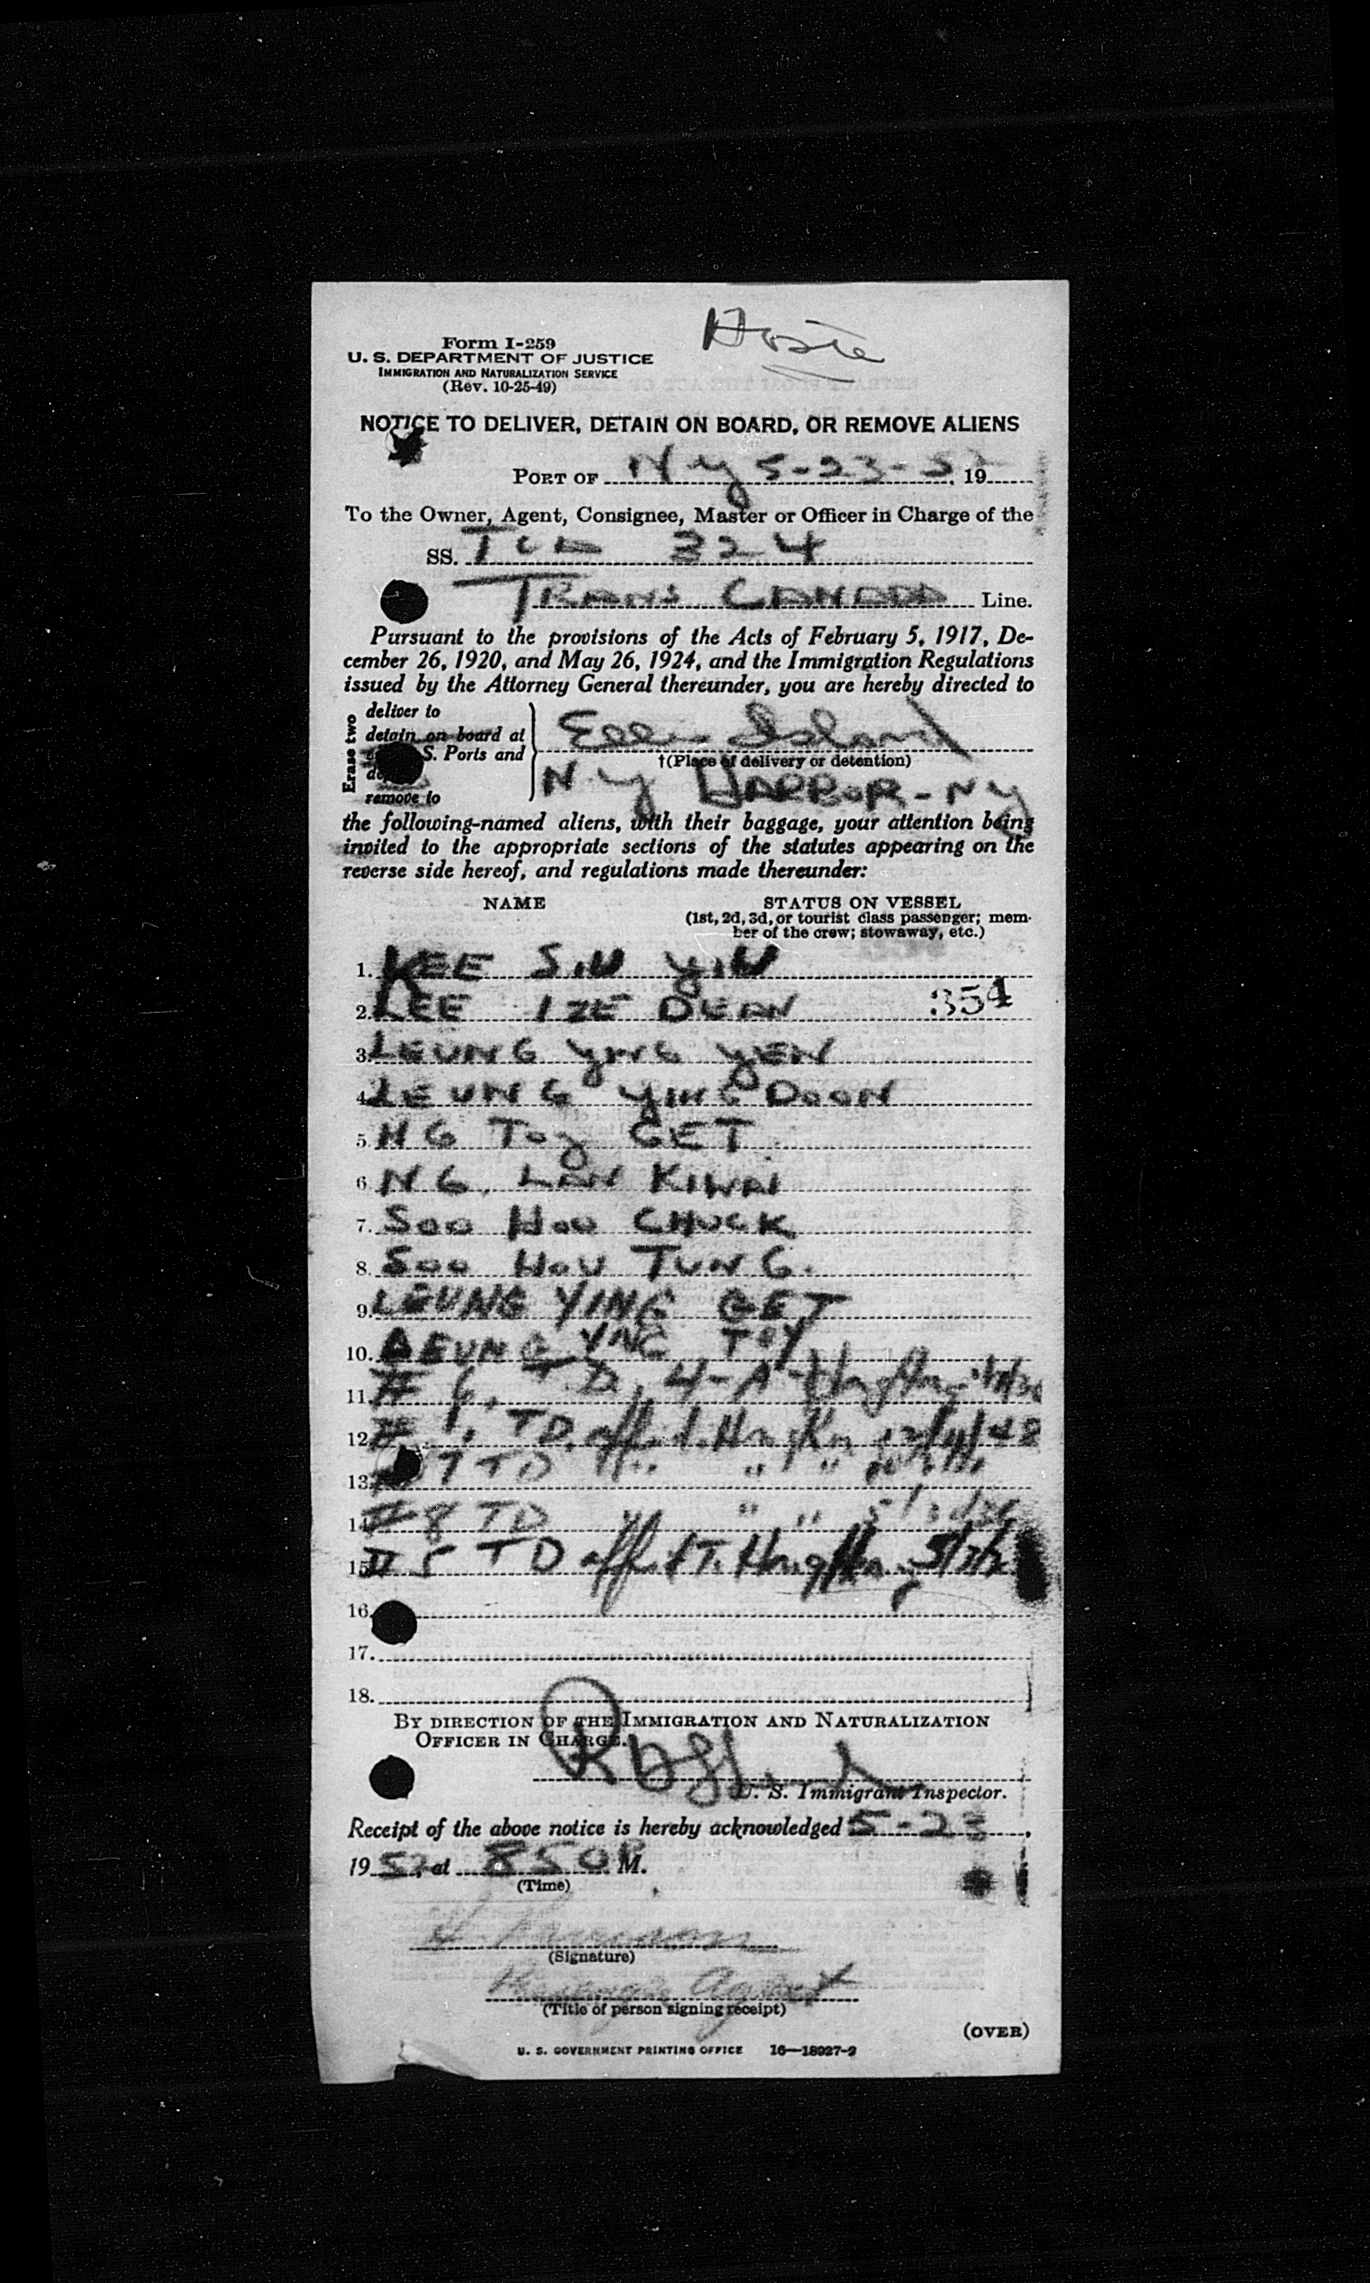 Form I-259
U. S. DEPARTMENT OF JUSTICE
IMMIGRATION AND NATURALIZATION SERVICE
(Rev. 10-25-49)
NOTICE TO DELIVER, DETAIN ON BOARD, OR REMOVE ALIENS
PORT OF N y 5-23-52, 19
To the Owner, Agent, Consignee, Master or Officer in Charge of the
SS. TCA 324
TRANS CANADA Line.
Pursuant to the provisions of the Acts of February 5, 1917, De-
cember 26, 1920, and May 26, 1924, and the Immigration Regulations
issued by the Attorney General thereunder, you are hereby directed to
Erase two
deliver to
detain on board at
S. Ports and
remove to
Ellis Island
†(Place of delivery or detention)
N y HARBOR - N y
the following-named aliens, with their baggage, your attention being
invited to the appropriate sections of the statutes appearing on the
reverse side hereof, and regulations made thereunder:
NAME
STATUS ON VESSEL
(1st, 2d, 3d, or tourist class passenger; mem-
ber of the crew; stowaway, etc.)
1. KEE SIU YIU
2. LEE IZE DEAN 354
3. LEUNG YING YEN
4. LEUNG YING DOON
5. NG Toy GET
6. NG, LAN KIWAI
7. Soo Hoo CHUCK
8. Soo Hou TUNG.
9. LEUNG YING GET
10. LEUNG YNG TOY
11. # 6, T.D. 4-A-Hong Kong
12. # 1, TD. affid. Hong Kong 12/11/48
13. # 7 TD " " "
14. # 8 TD " " "
15. # 5 TD affid T. Hong Kong
16.
17.
18.
BY DIRECTION OF THE IMMIGRATION AND NATURALIZATION
OFFICER IN CHARGE.
U. S. Immigrant Inspector.
Receipt of the above notice is hereby acknowledged 5-23,
1952, at 850 P. M.
(Time)
(Signature)
Passenger Agent
(Title of person signing receipt)
(OVER)
U. S. GOVERNMENT PRINTING OFFICE 16—18927-2